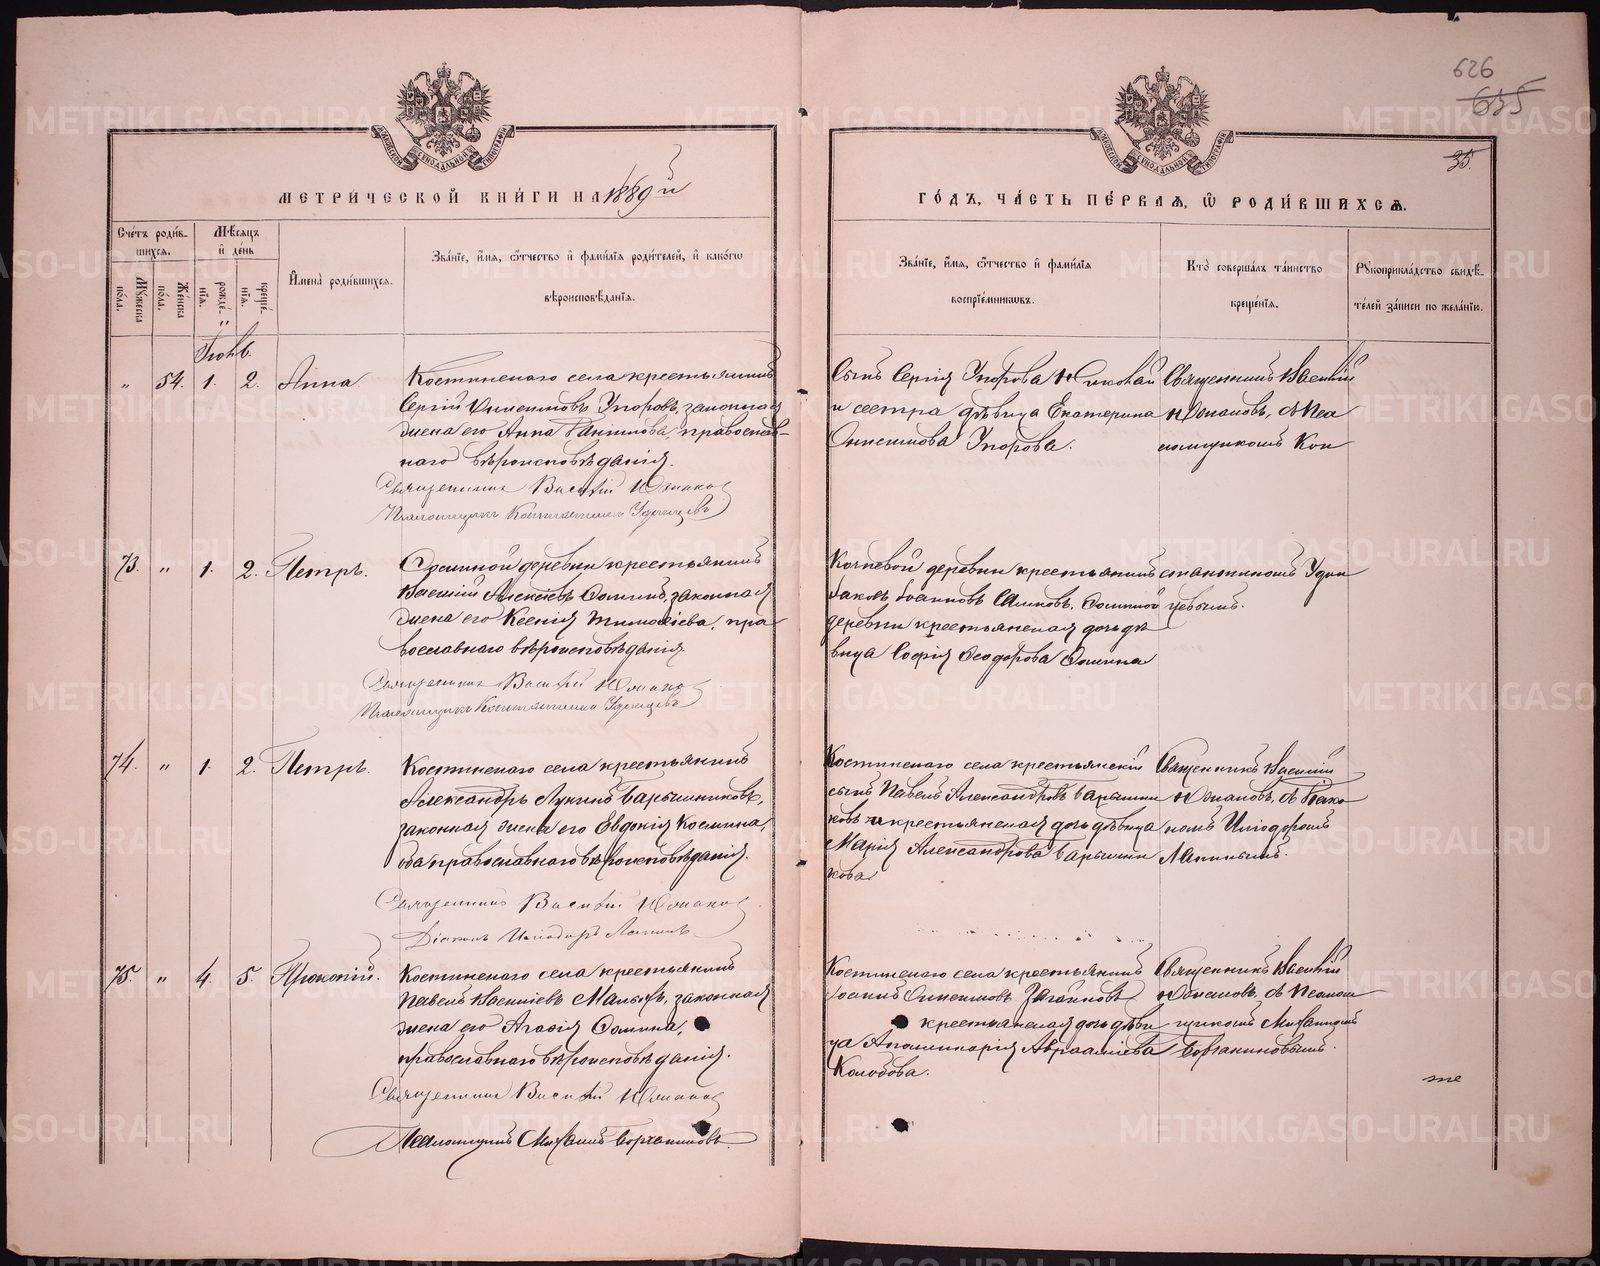 626
635
35.
МОСКОВСКОЙ СѴНОДАЛЬНОЙ ТИПОГРАФІИ
МОСКОВСКОЙ СѴНОДАЛЬНОЙ ТИПОГРАФІИ
МЕТРИЧЕСКОЙ КНИГИ НА 1889й
ГОДЪ, ЧАСТЬ ПЕРВАЯ, Ѡ РОДИВШИХСЯ.
Счетъ родив-
шихся.
Мужеска пола.
Женска пола.
Мѣсяцъ
и день
рожде-
нія.
креще-
нія.
Имена родившихся.
Званіе, имя, отчество и фамилія родителей, и какогѡ
вѣроисповѣданія.
Званіе, имя, отчество и фамилія
воспріемниковъ.
Кто совершалъ таинство
крещенія.
Рукоприкладство свидѣ-
телей записи по желанію.
Іюнь.
" 54. 1. 2. Анна
Костинскаго села крестьянинъ
Сергій Онисимовъ Упоровъ, законная
жена его Анна, православ-
наго вѣроисповѣданія.
Священникъ Василій Южаков
Псаломщикъ Константинъ Удинцевъ
Сынъ Сергія Упорова Николай
и сестра дѣвица Екатерина
Онисимова Упорова.
Священникъ Василій
Южаковъ, съ Пса
ломщикомъ Кон
73. " 1. 2. Петръ.
деревни крестьянинъ
Василій Алексѣевъ, законная
жена его Ксенія Тимоѳеева, пра
вославнаго вѣроисповѣданія.
Священникъ Василій Южаков
Псаломщикъ Константинъ Удинцевъ
деревни крестьянинъ
Іаковъ Іоанновъ
деревни крестьянская дочь дѣ
вица Софія Ѳеодорова
стантиномъ Удин
цевымъ.
74. " 1. 2. Петръ.
Костинскаго села крестьянинъ
Александръ Лукинъ Барышниковъ,
законная жена его Евдокія Космина,
оба православнаго вѣроисповѣданія.
Священникъ Василій Южаков
Діаконъ Иліодоръ Лапинъ
Костинскаго села крестьянскій
сынъ Павелъ Александровъ Барышни
ковъ и крестьянская дочь дѣвица
Марія Александрова Барышни
кова
Священникъ Василій
Южаковъ, съ Діако
номъ Иліодоромъ
Лапинымъ.
75. " 4. 5. Прокопій.
Костинскаго села крестьянинъ
Павелъ Василіевъ, законная
жена его Агаѳія,
православнаго вѣроисповѣданія.
Священникъ Василій Южаков
Псаломщикъ Михаилъ
Костинскаго села крестьянинъ
Іоаннъ Онисимовъ
крестьянская дочь дѣви
ца Аполлинарія Авраамiева
Колобова.
Священникъ Василій
Южаковъ, съ Псалом
щикомъ Михаиломъ